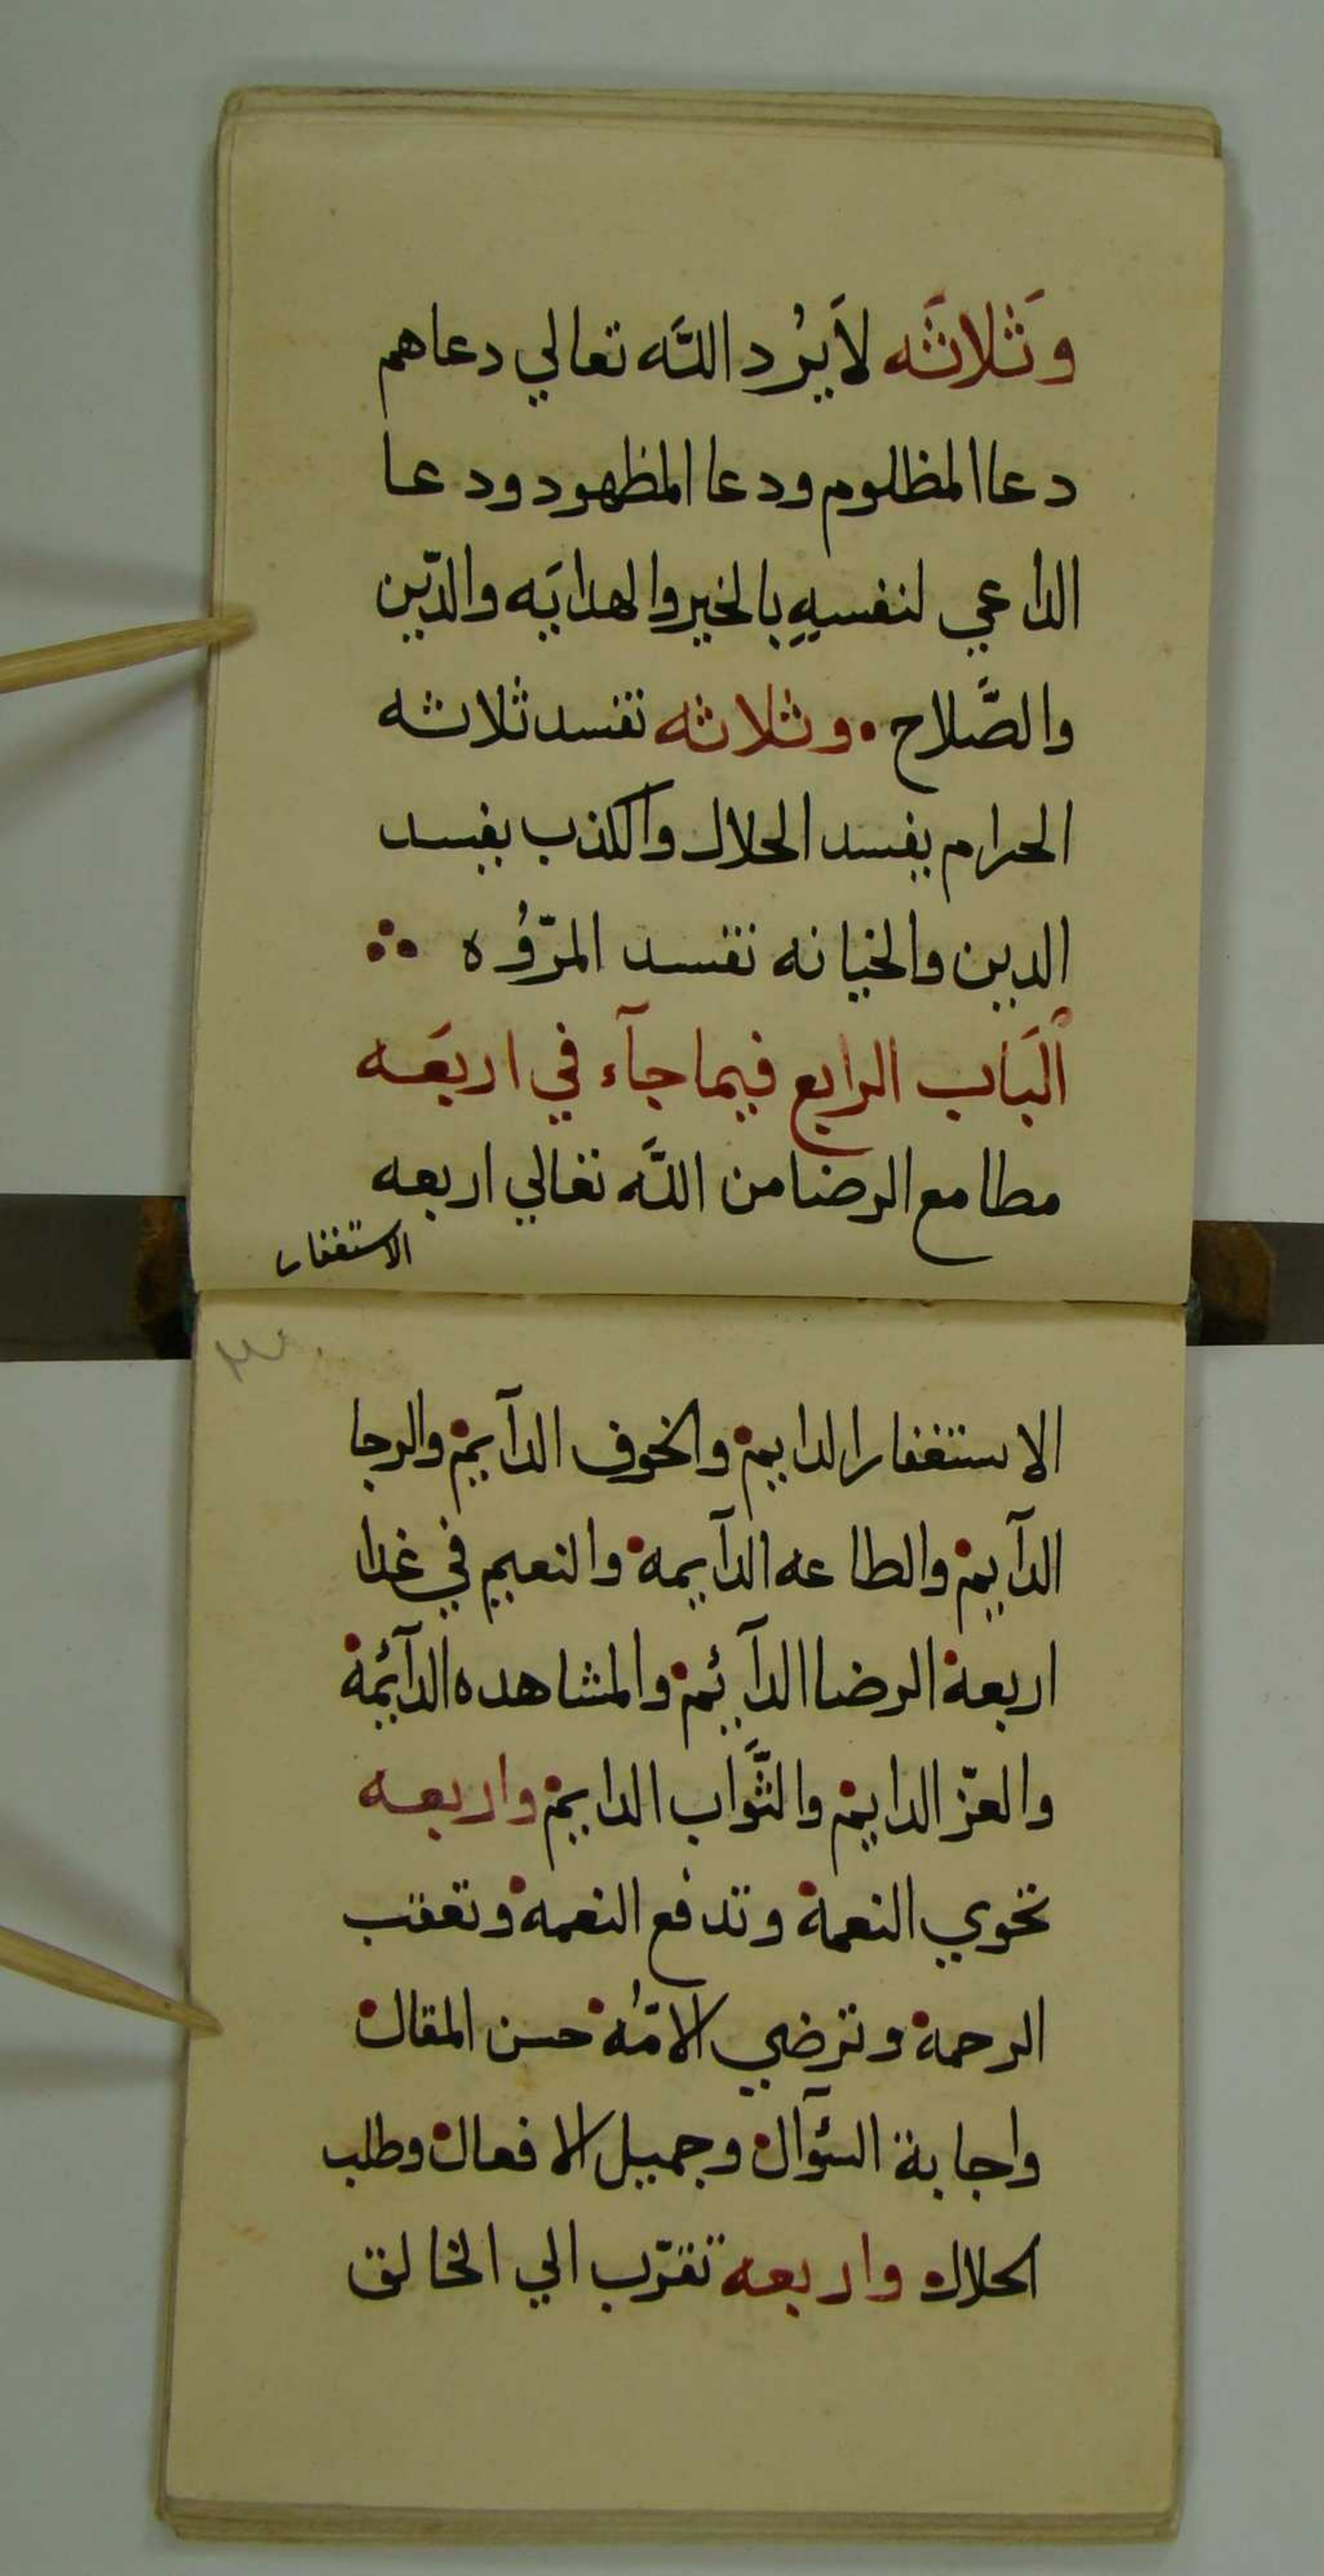 وَثَلاثَه لاَيرُد اللَّه تعالي دعاهم
دعا المظلوم ودعا المظهود ودعا
الداعي لنفسهِ بالخير والهدايَه والدّين
والصَّلاح • وثلاثه تفسد ثلاثه
الحرام يفسد الحلال والكذب يفسد
الدين والخيانه تفسد المرّوُه ∴
ألبَاب الرابع فيما جآء في اربعَه
مطامع الرضا من اللَّه تعالي اربعه
الاستغفار
الاستغفار الدايم • والخوف الدآيم • والرجا
الدآيم • والطاعه الدآيمه • والنعيم في غدا
اربعة • الرضا الدآئم • والمشاهده الدآئمة •
والعزّ الدايم • والثَّواب الدايم • واربعه
تحوي النعمة • وتدفع النعمه • وتعقب
الرحمة • وترضي الامّه • حسن المقال •
واجابة السؤآل • وجميل الافعال • وطلب
الحلال • واربعه تقرّب الي الخالق